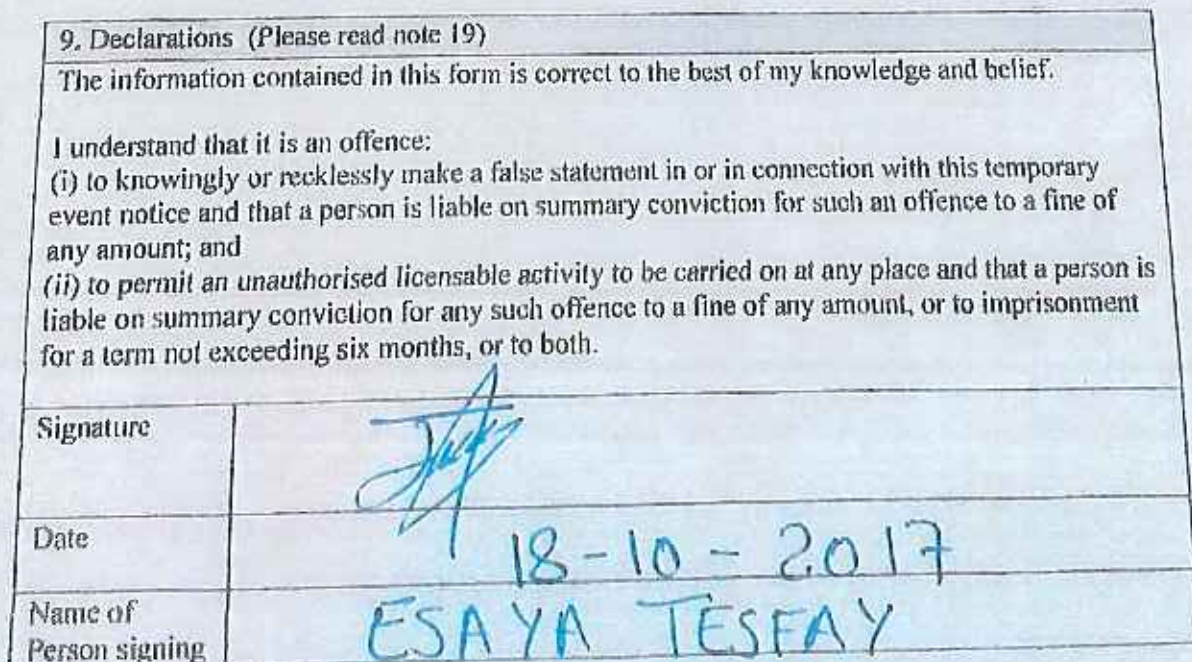 9. Declarations (Please read note 19)
The information contained in this form is correct to the best of my knowledge and belief.
I understand that it is an offence:
(i) to knowingly or recklessly make a false statement in or in connection with this temporary
event notice and that a person is liable on summary conviction for such an offence to a fine of
any amount; and
(ii) to permit an unauthorised licensable activity to be carried on at any place and that a person is
liable on summary conviction for any such offence to a fine of any amount, or to imprisonment
for a term not exceeding six months, or to both.
Signature
Date 18-10-2017
Name of
Person signing ESAYA TESFAY